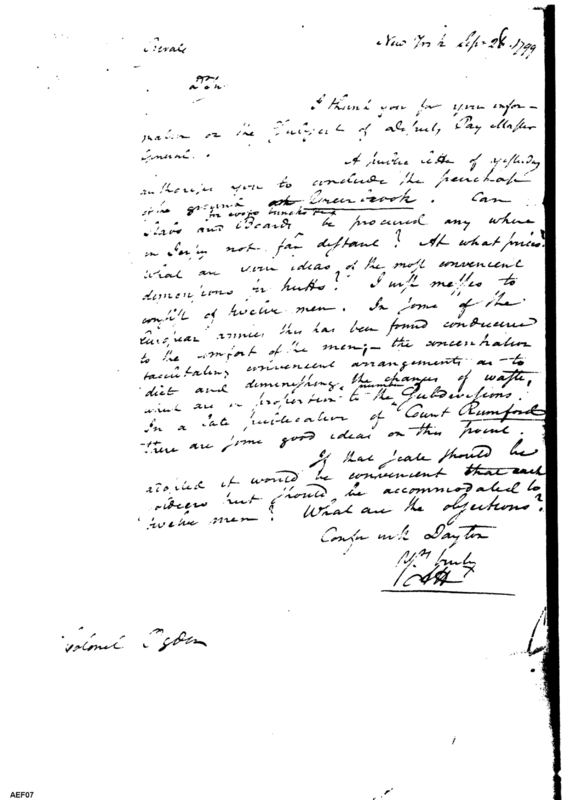 Private
New York Sepr 26. 1799
Sir
I thank you for your infor-
mation on the Subject of deputy Pay Master
General.
A public letter of yesterday
authorises you to conclude the purchase
of the ground at Green brook. Can
Slabs and Boards be procured any where
in Jersey not far distant? At what prices?
What are your ideas of the most convenient
dimensions for hutts? I wish messes to
consist of twelve men. In some of the
European armies this has been found conducive
to the comfort of the men; the concentration
facilitating convenient arrangements as to
diet and diminishing the chances of waste,
which are in proportion to the number Subdivisions.
In a late publication of Count Rumford
there are some good ideas on this point.
If that scale should be
adopted it would be convenient that each
soldiers hut should be accommodated to
twelve men? What are the objections?
Confer with Dayton
Yrs truly
AH
Colonel Ogden
AEF07